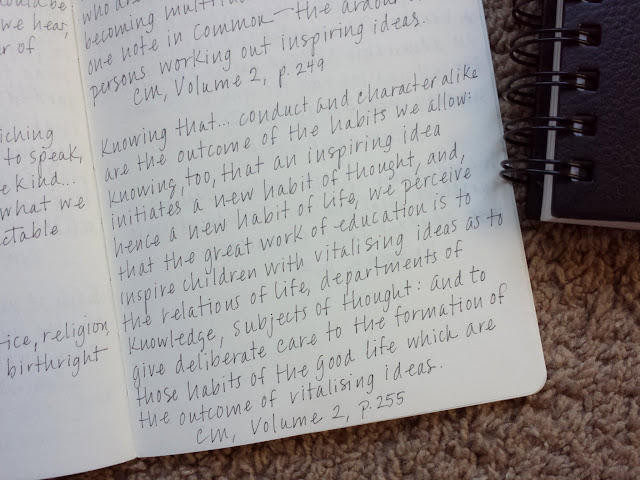 ould be
we hear,
r of
iching
to speak,
e kind...
what we
ctable
ice, religion,
birthright
who are
becoming multitu
one note in common—the ardour
persons working out inspiring ideas.
CM, Volume 2, p. 249
Knowing that... conduct and character alike
are the outcome of the habits we allow:
knowing, too, that an inspiring idea
initiates a new habit of thought, and,
hence a new habit of life, we perceive
that the great work of education is to
inspire children with vitalising ideas as to
the relations of life, departments of
knowledge, subjects of thought: and to
give deliberate care to the formation of
those habits of the good life which are
the outcome of vitalising ideas.
CM, Volume 2, p. 255